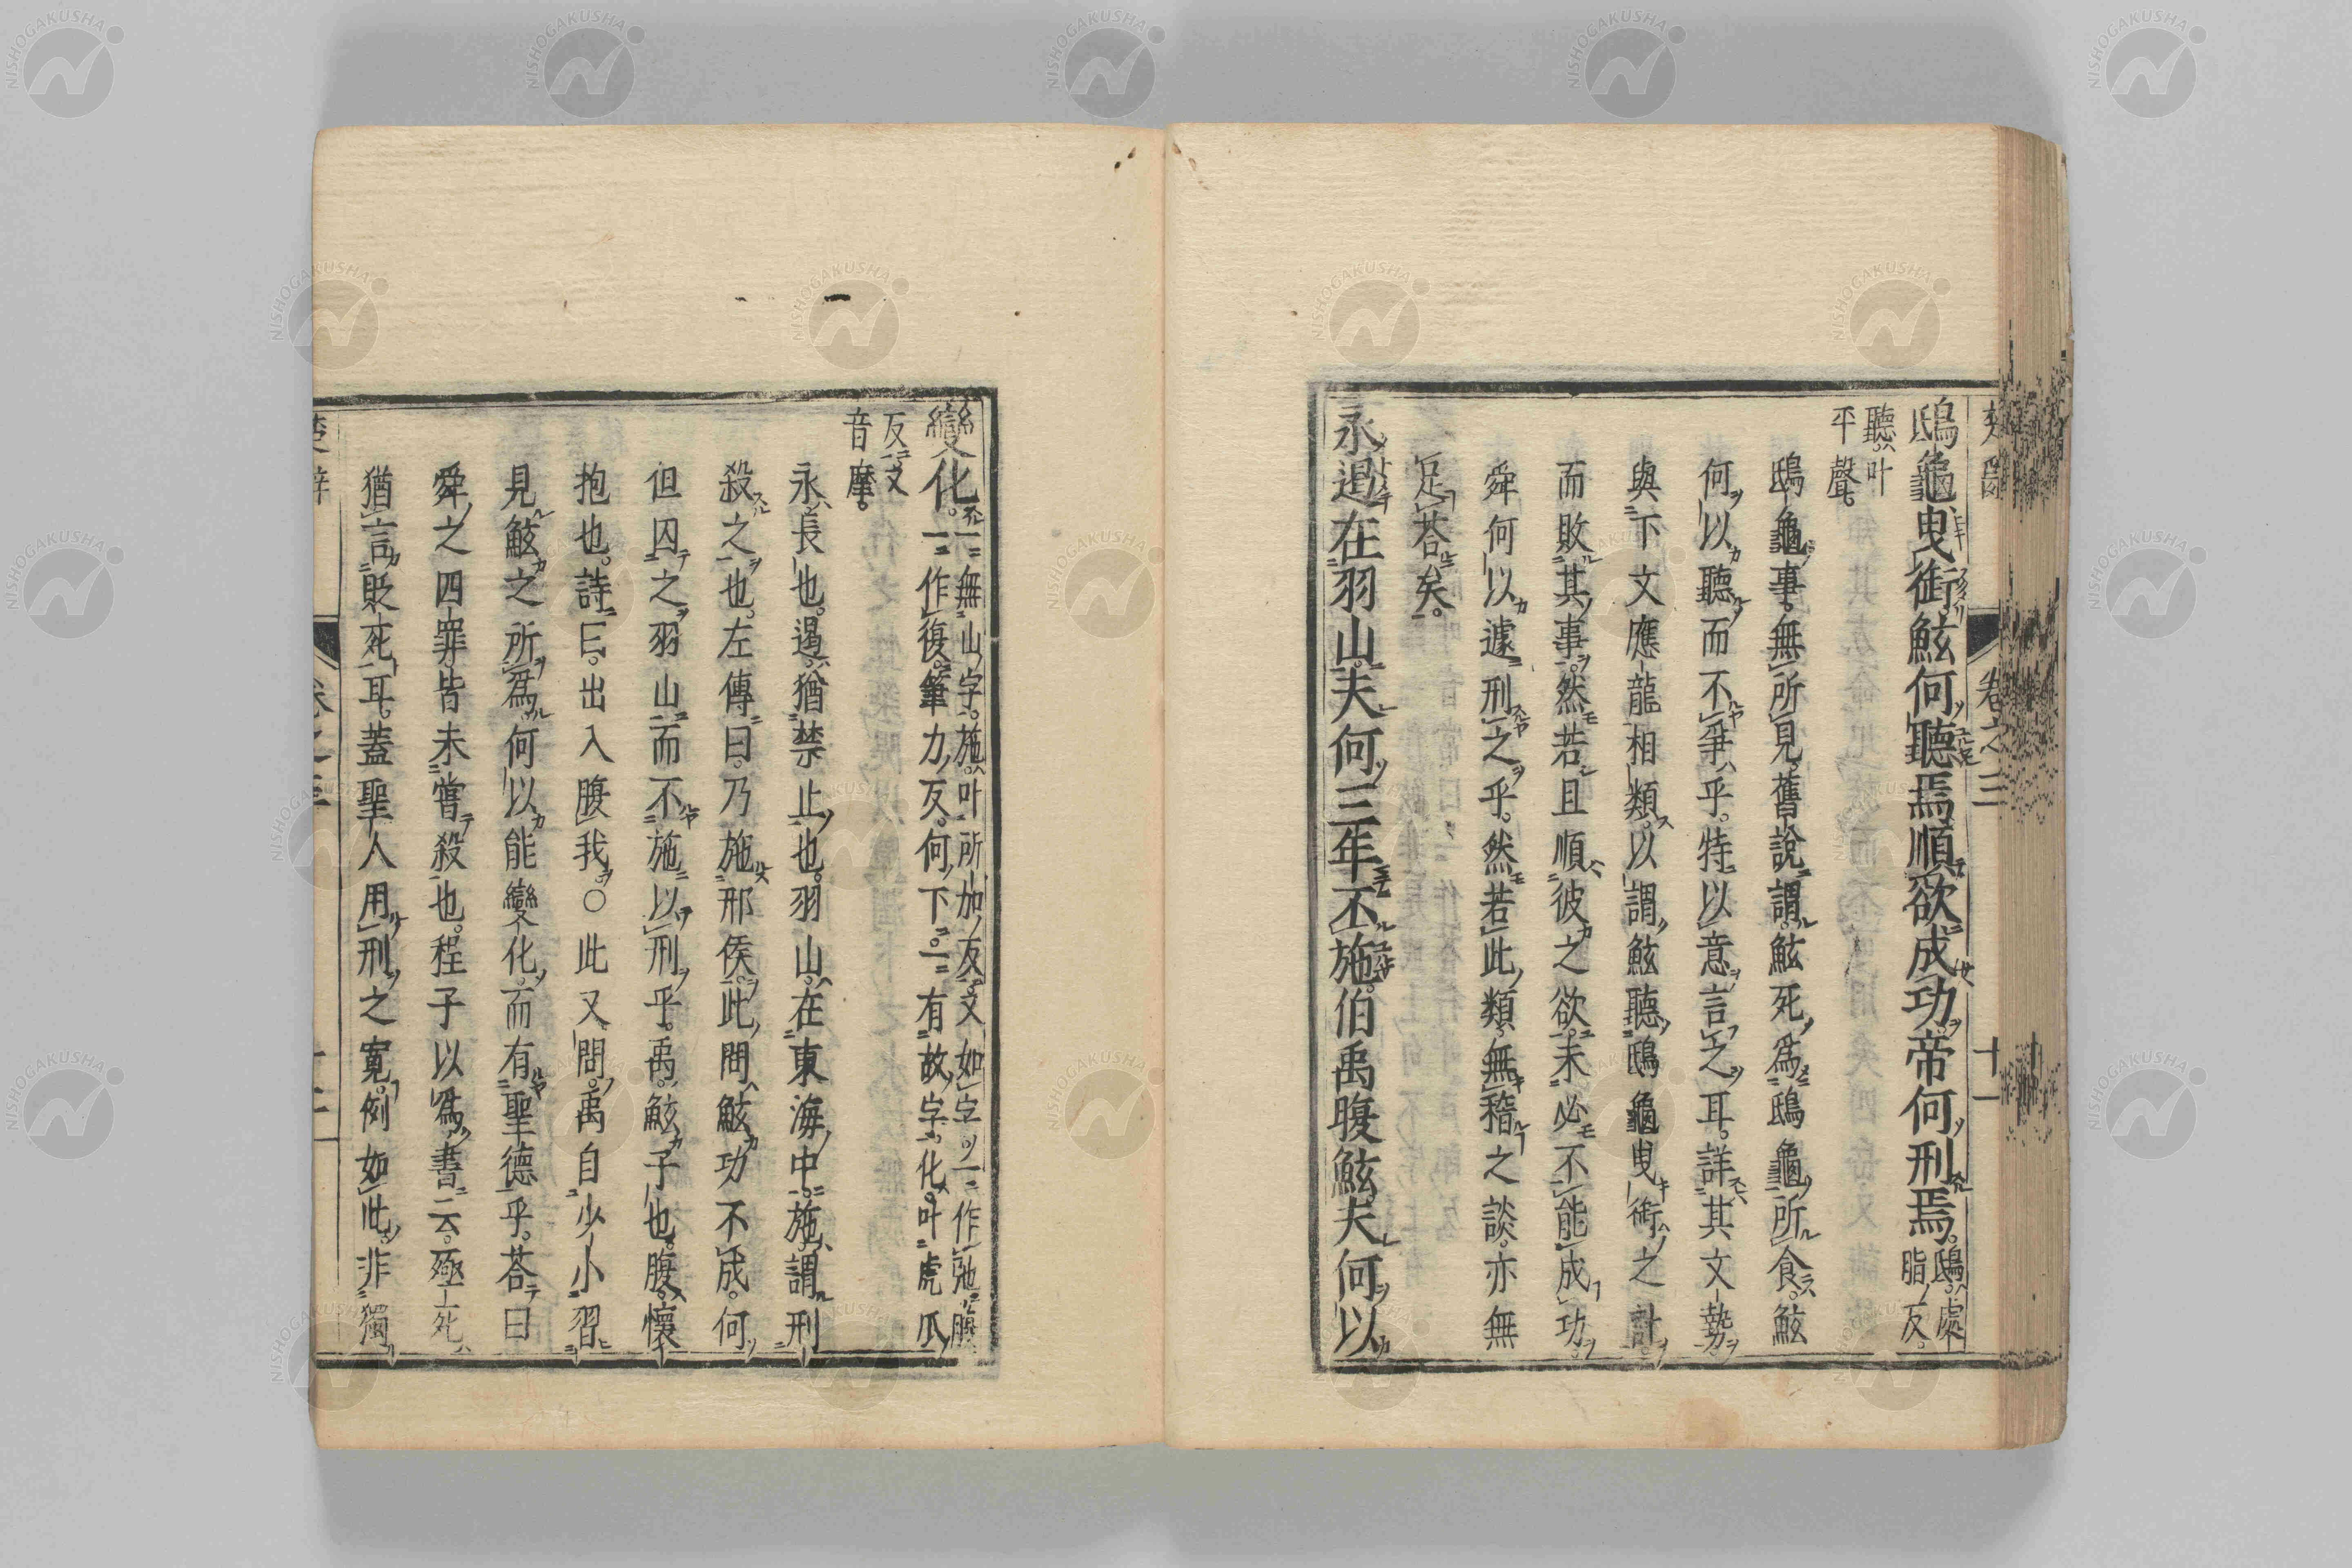 鴟龜曳銜鮌何聽焉順欲成功帝何刑焉。鴟處脂反。
聽叶平聲。
鴟龜事。無所見。舊說謂鮌死爲鴟龜所食。鮌
何以聽而不爭乎。特以意言之耳。詳其文勢
與下文應龍相類。以謂鮌聽鴟龜曳銜之計
而敗其事。然若且順彼之欲。未必不能成功。
舜何以遽刑之乎。然若此類無稽之談。亦無
足荅矣。
永遏在羽山夫何三年不施。伯禹腹鮌夫何以
變化。一無山字。施。叶所加反。又如字。一作弛。腹。一作復。筆力反。何下。一有故字。化。叶虎瓜
反。又音摩。
永長也。遏猶禁止也。羽山。在東海中。施。謂刑
殺之也。左傳曰。乃施邢侯。此問鮌功不成。何
但囚之羽山。而不施以刑乎。禹。鮌子也。腹。懷
抱也。詩曰。出入腹我。〇此又問。禹自少小習
見鮌之所爲。何以能變化。而有聖德乎。荅曰
舜之四罪皆未嘗殺也。程子以爲書云。殛死
猶言貶死耳。蓋聖人用刑之寬。例如此。非獨
卷之三
十一
NISHOGAKUSHA